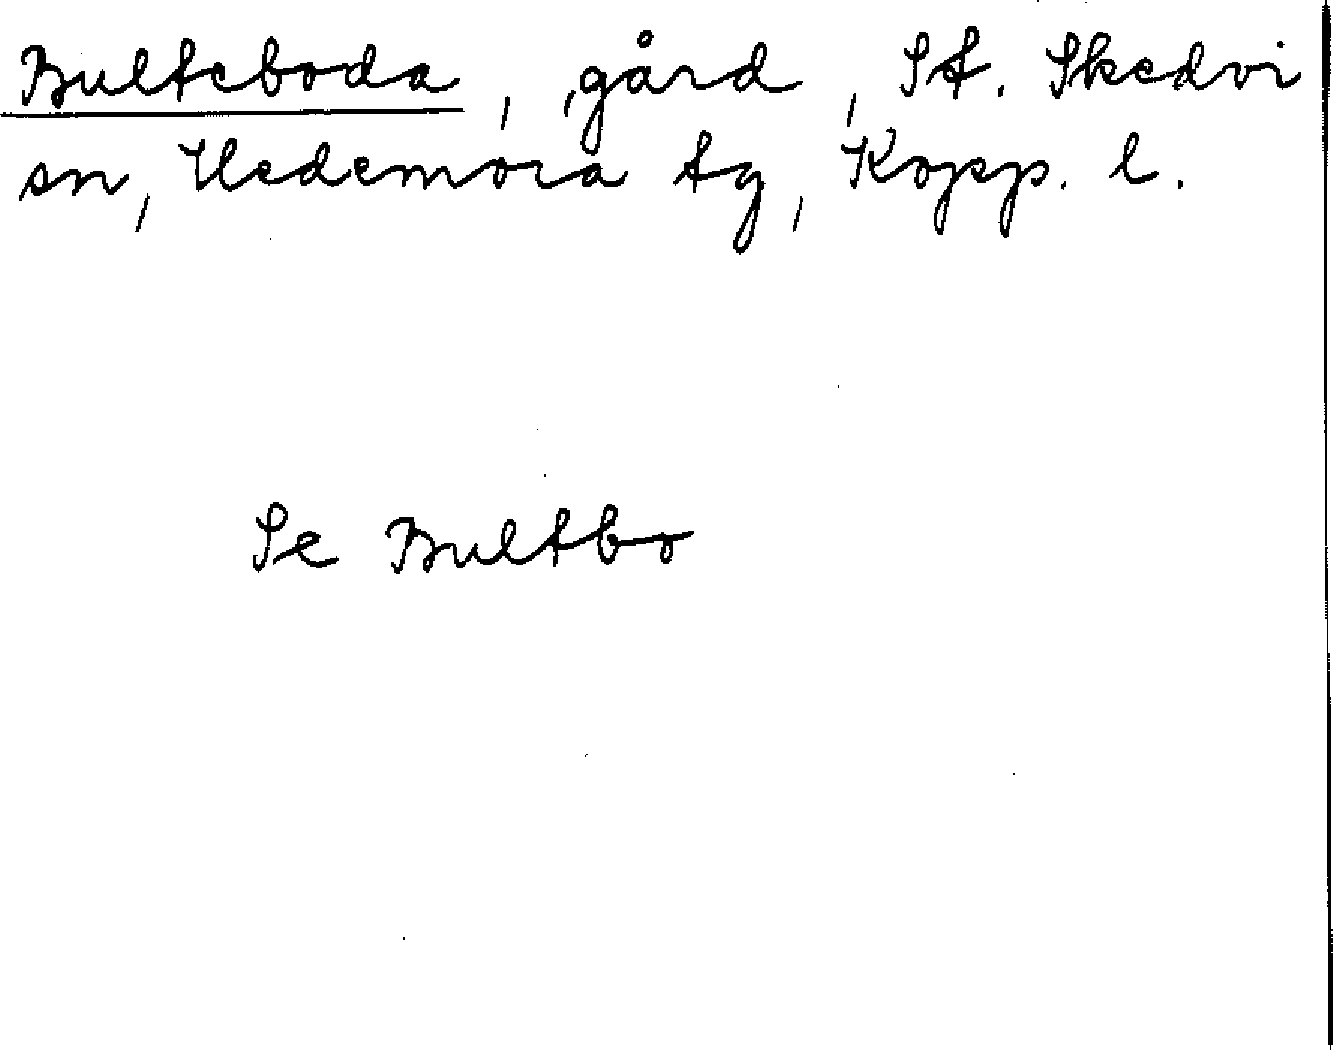 Bulteboda, gård, St. Skedvi
sn, Hedemora tg, Kopp. l.
Se Bultbo